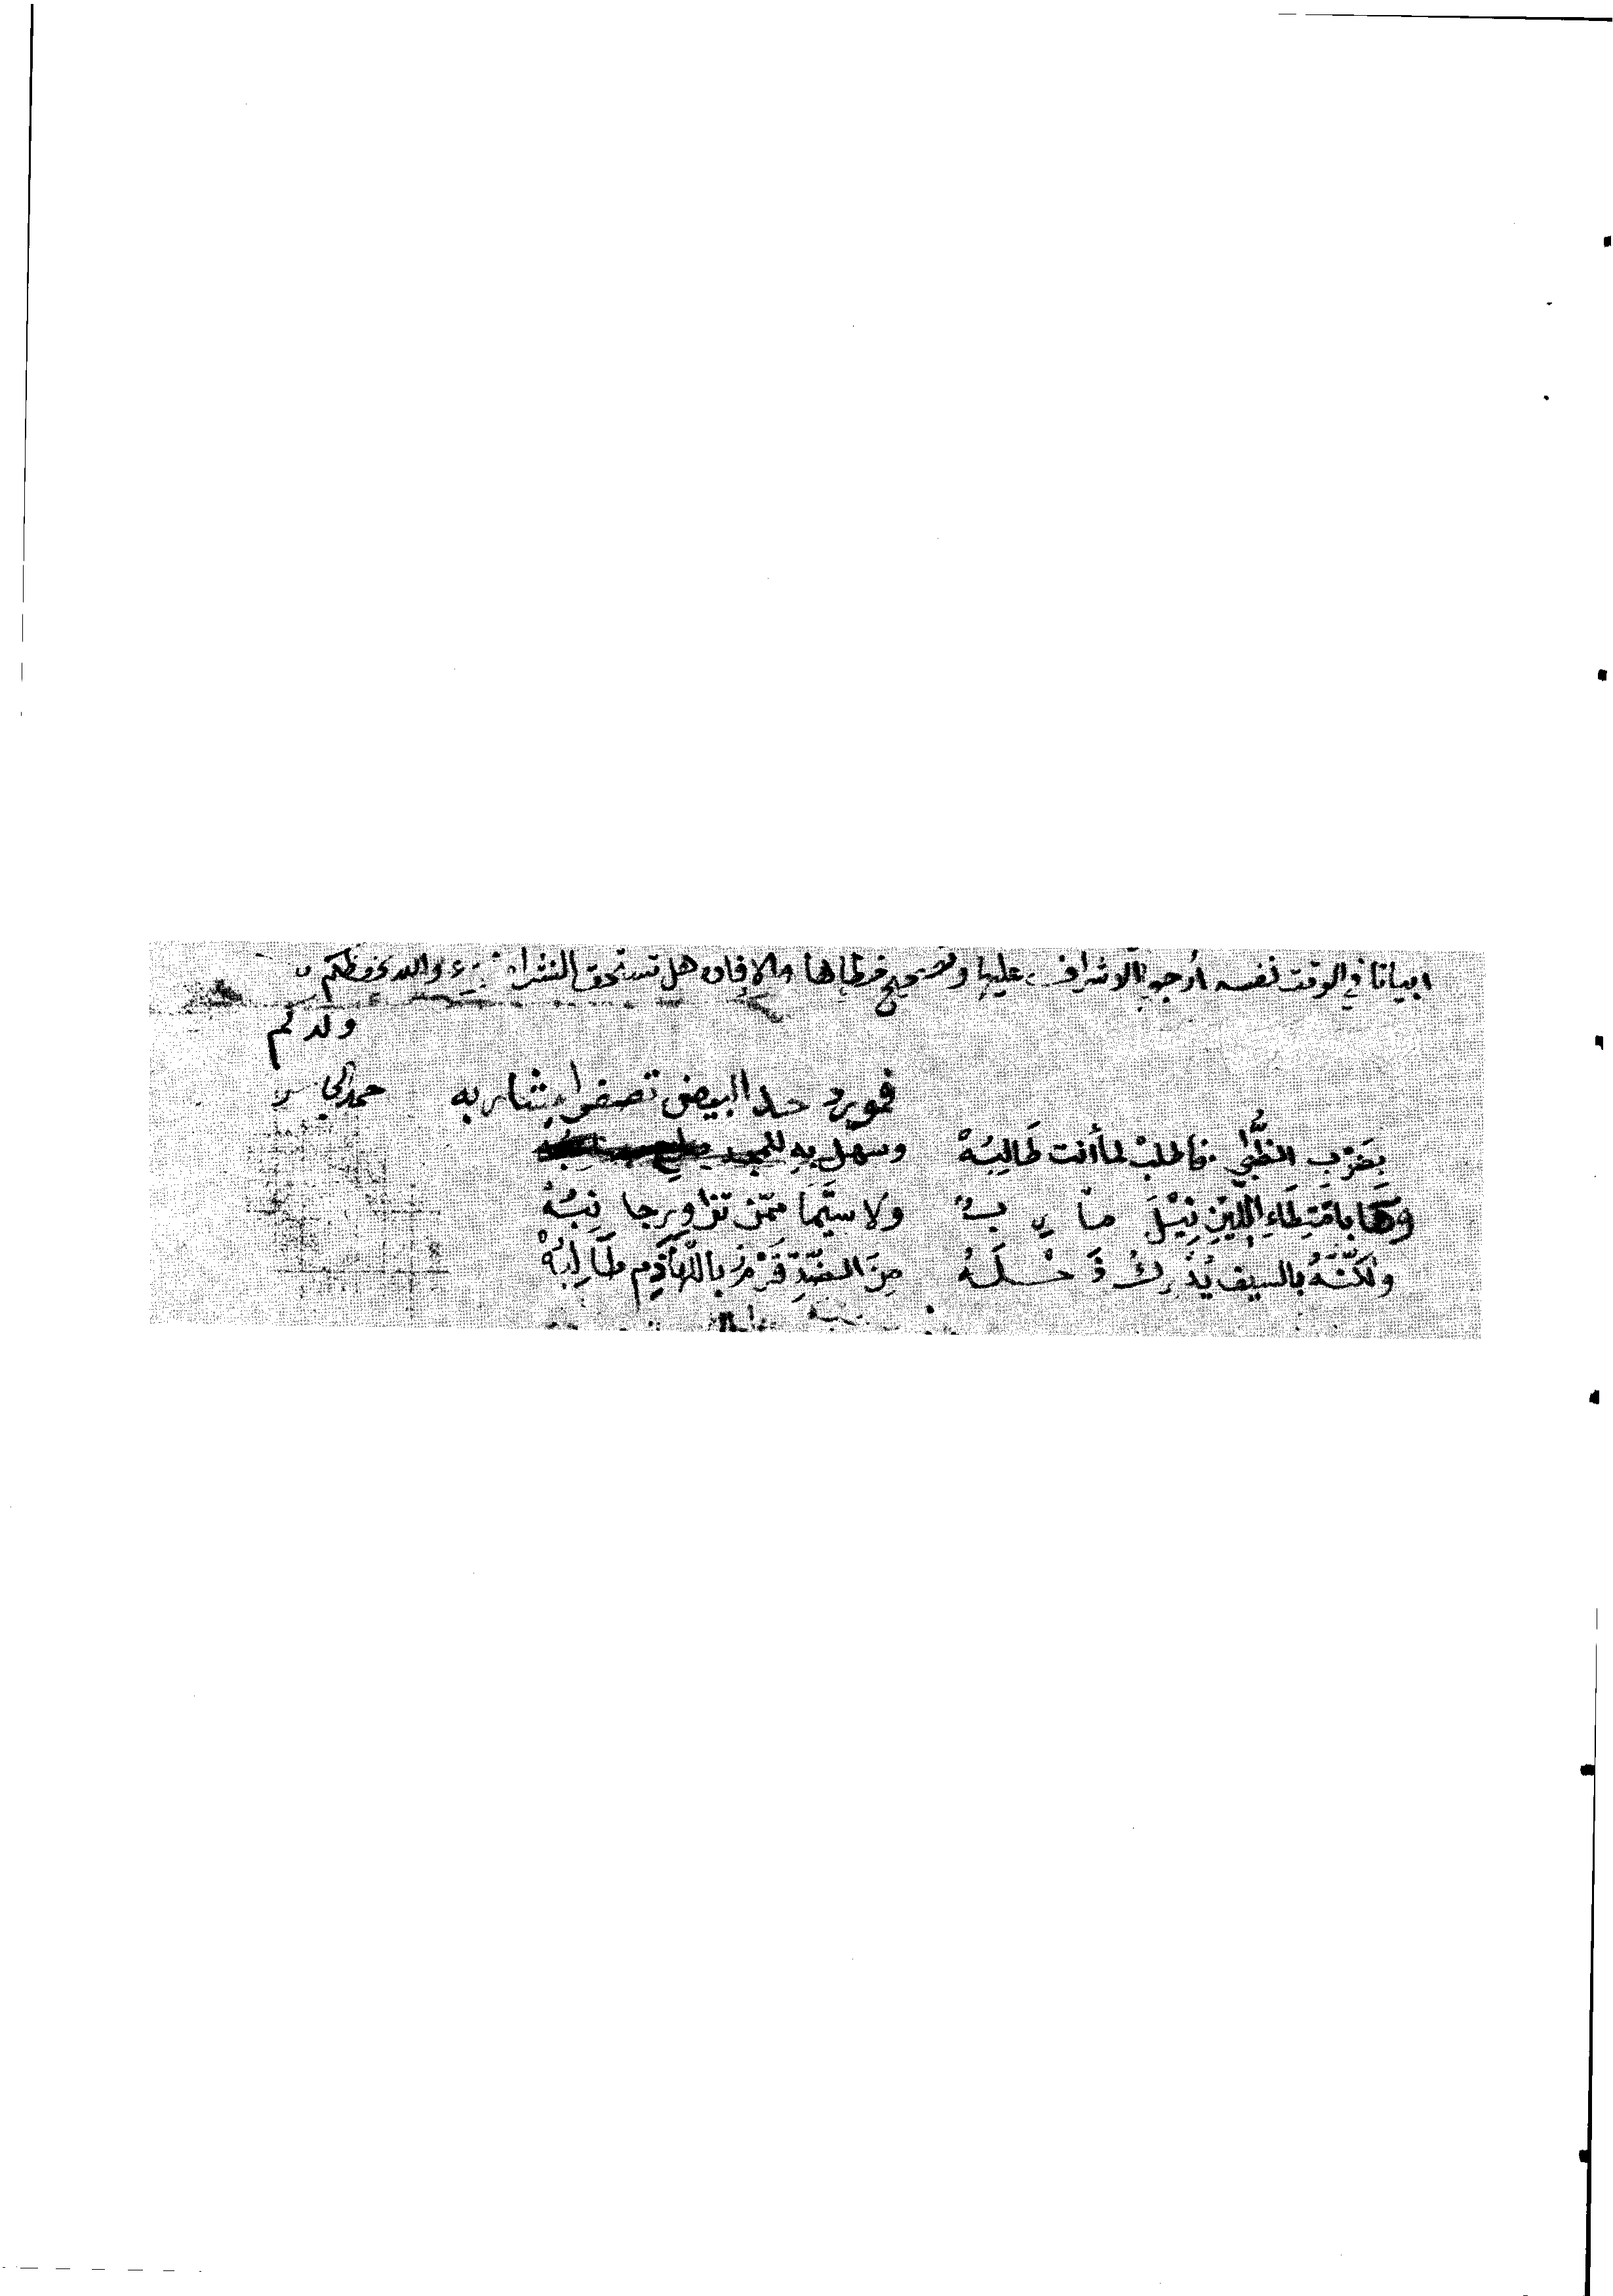 ابياتا في الوقت نفسه أرجو الاشراف عليها وتصحيح خطاها والافادة هل تستحق النشر والله يحفظكم
ولدكم
حمد الجاسر
فمورد حد البيض تصفو مشاربه
بِضَرْبِ الظُّبَى فاطلبْ لما أنت طَالِبُهْ وسهل بِهِ للمجد
بامْتِطَاءِ اللِّينِ نِيْلَ مآرب ولا سيَّما مِمَّنْ تَزَاوَرَ جانِبُهُ
ولكنَّهُ بالسيف يُدْرِكُ ذَحْلَهُ مِنَ الضِّدِّ قَرْمٌ باللَّهاذِمِ طَالِبُهْ